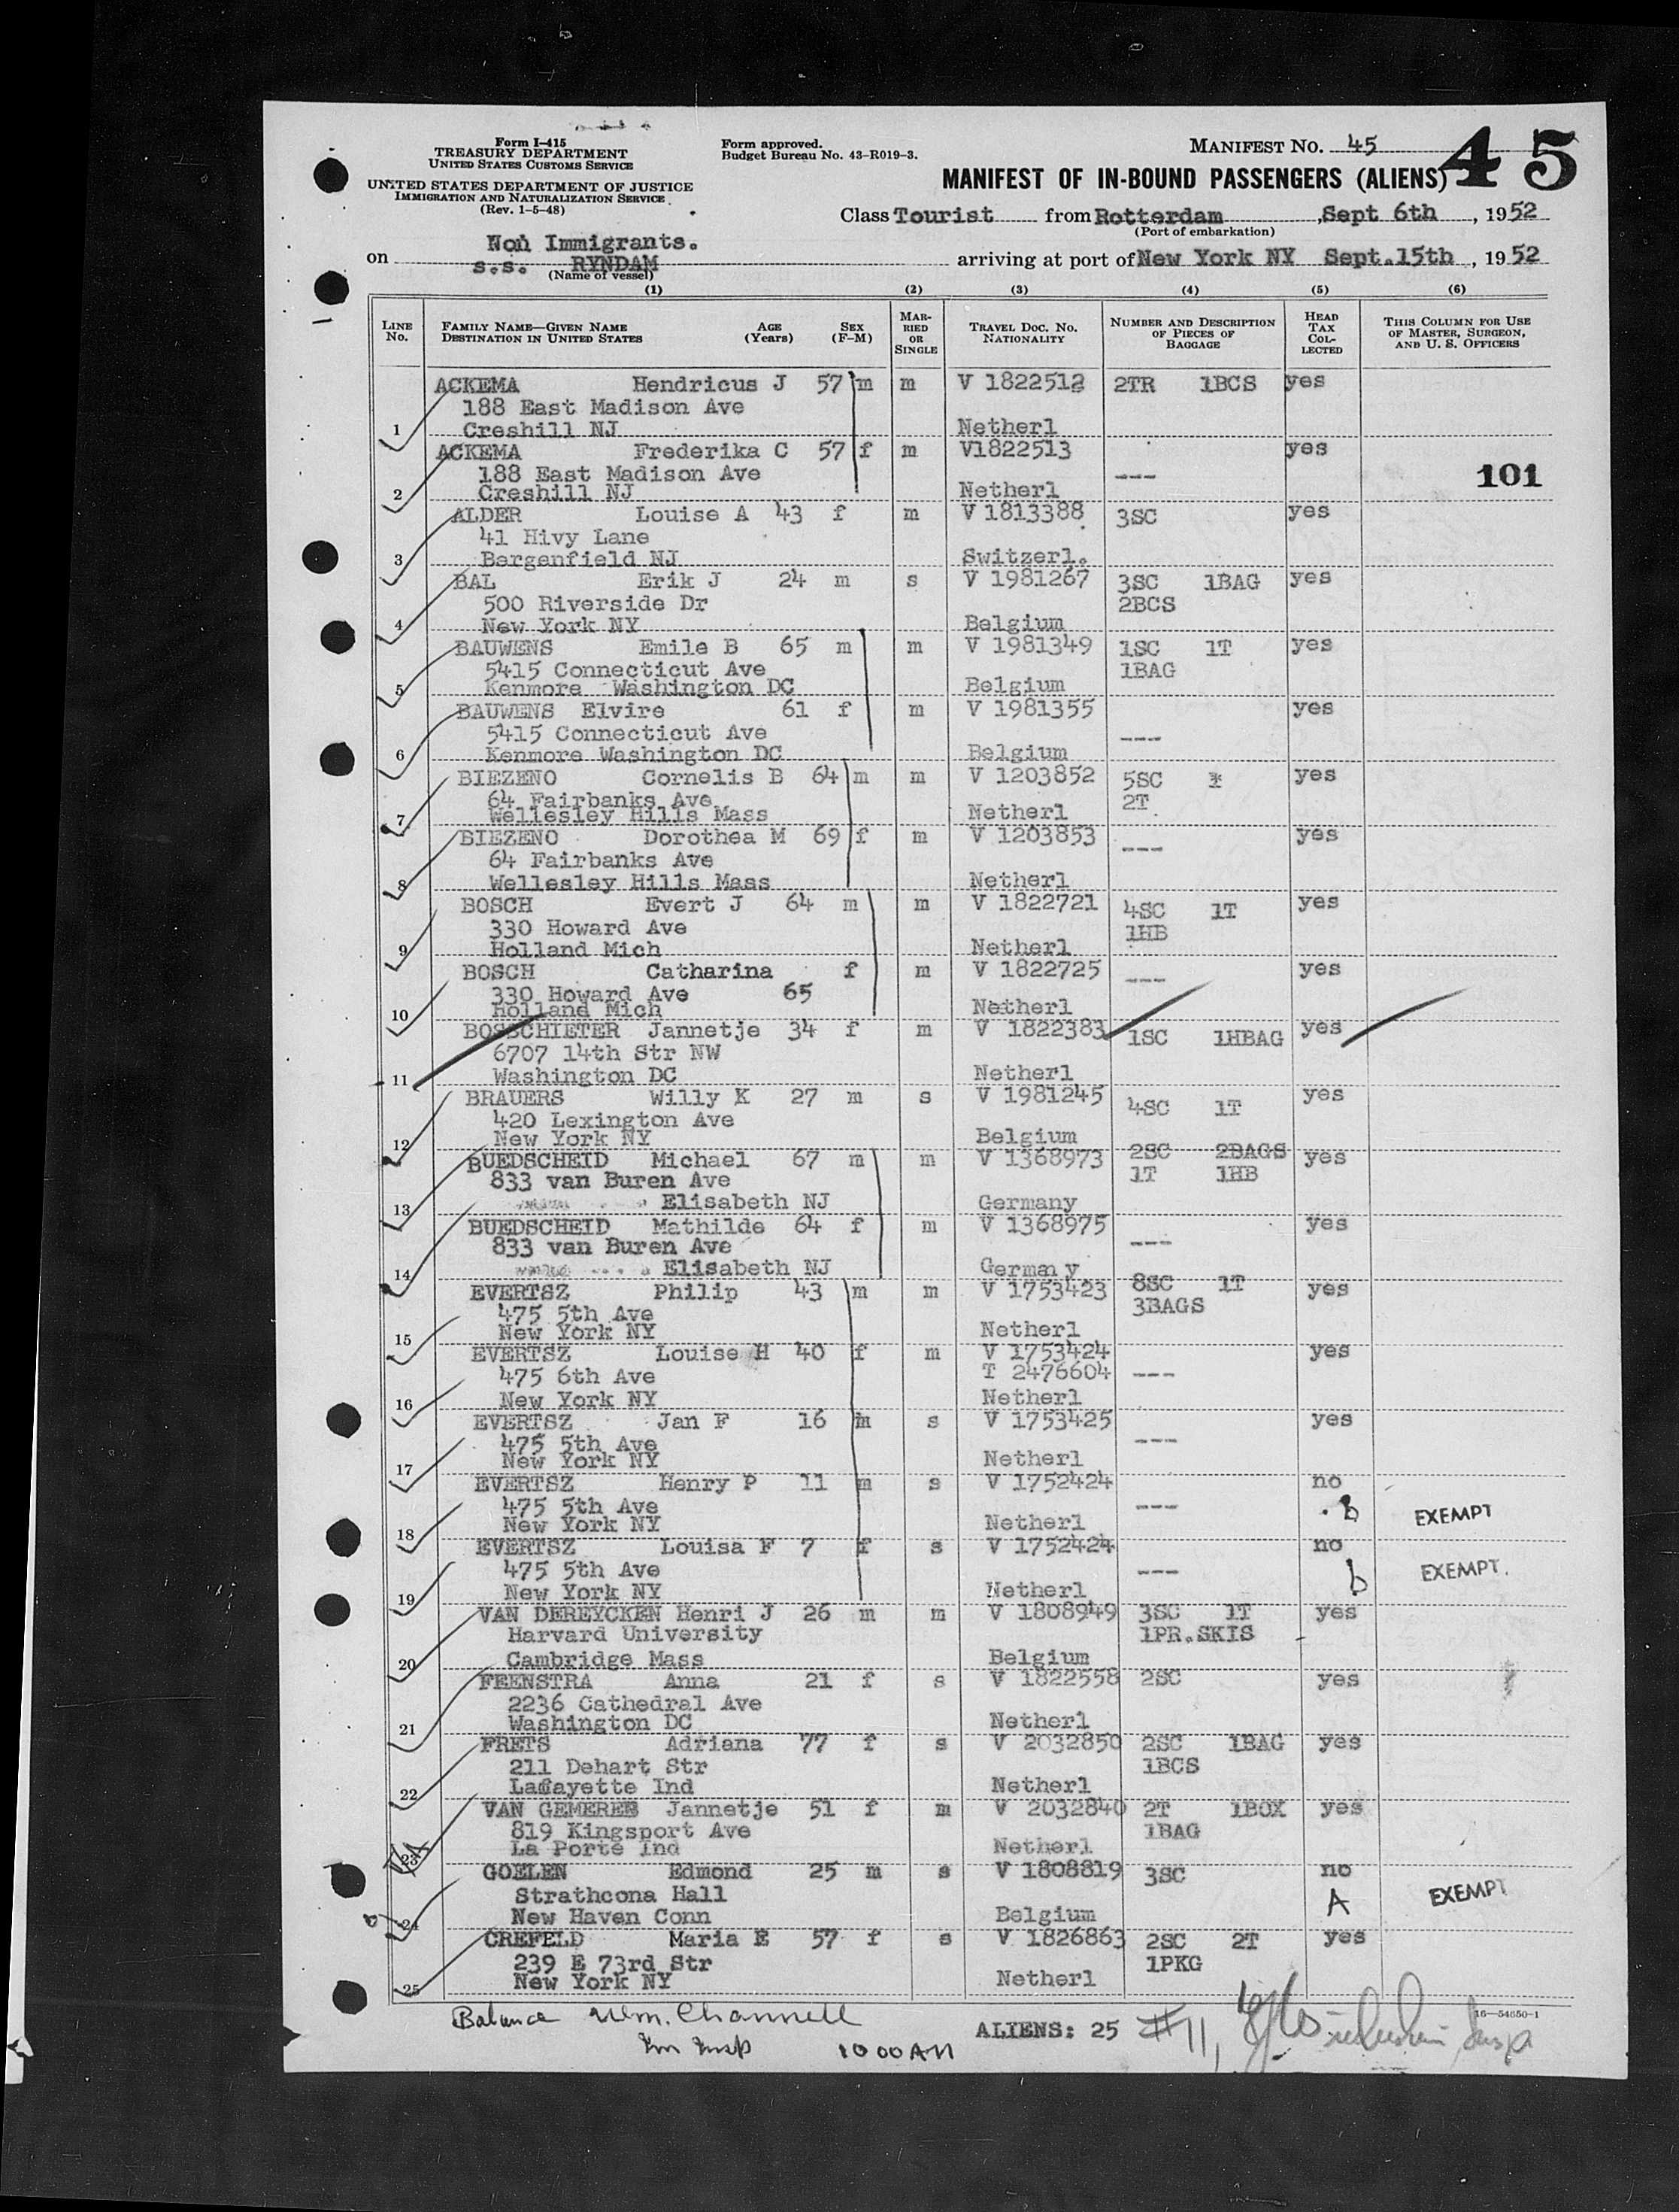 Form I-415
TREASURY DEPARTMENT
UNITED STATES CUSTOMS SERVICE
UNITED STATES DEPARTMENT OF JUSTICE
IMMIGRATION AND NATURALIZATION SERVICE
(Rev. 1-5-48)
Form approved.
Budget Bureau No. 43-R019-3.
MANIFEST No. 45
45
MANIFEST OF IN-BOUND PASSENGERS (ALIENS)
Class Tourist from Rotterdam, Sept 6th, 1952
(Port of embarkation)
Non Immigrants.
on s.s. RYNDAM arriving at port of New York NY Sept.15th, 1952
(Name of vessel)
(1) (2) (3) (4) (5) (6)
LINE No. FAMILY NAME—GIVEN NAME DESTINATION IN UNITED STATES AGE (Years) SEX (F-M) MARRIED OR SINGLE TRAVEL DOC. NO. NATIONALITY NUMBER AND DESCRIPTION OF PIECES OF BAGGAGE HEAD TAX COLLECTED THIS COLUMN FOR USE OF MASTER, SURGEON, AND U. S. OFFICERS
ACKEMA Hendricus J 57 m m V 1822512 2TR 1BCS yes
188 East Madison Ave
1 Creshill NJ Netherl
ACKEMA Frederika C 57 f m V1822513 yes
188 East Madison Ave --- 101
2 Creshill NJ Netherl
ALDER Louise A 43 f m V 1813388 3SC yes
41 Hivy Lane
3 Bergenfield NJ Switzerl.
BAL Erik J 24 m s V 1981267 3SC 1BAG yes
500 Riverside Dr 2BCS
4 New York NY Belgium
BAUWENS Emile B 65 m m V 1981349 1SC 1T yes
5415 Connecticut Ave 1BAG
5 Kenmore Washington DC Belgium
BAUWENS Elvire 61 f m V 1981355 yes
5415 Connecticut Ave ---
6 Kenmore Washington DC Belgium
BIEZENO Cornelis B 64 m m V 1203852 5SC yes
64 Fairbanks Ave 2T
7 Wellesley Hills Mass Netherl
BIEZENO Dorothea M 69 f m V 1203853 --- yes
64 Fairbanks Ave
8 Wellesley Hills Mass Netherl
BOSCH Evert J 64 m m V 1822721 4SC 1T yes
330 Howard Ave 1HB
9 Holland Mich Netherl
BOSCH Catharina f m V 1822725 --- yes
330 Howard Ave 65
10 Holland Mich Netherl
BOSSCHIETER Jannetje 34 f m V 1822383 1SC 1HBAG yes
6707 14th Str NW
11 Washington DC Netherl
BRAUERS Willy K 27 m s V 1981245 4SC 1T yes
420 Lexington Ave
12 New York NY Belgium
BUEDSCHEID Michael 67 m m V 1368973 2SC 2BAGS yes
833 van Buren Ave 1T 1HB
13 Elisabeth NJ Germany
BUEDSCHEID Mathilde 64 f m V 1368975 --- yes
833 van Buren Ave
14 Elisabeth NJ Germany
EVERTSZ Philip 43 m m V 1753423 8SC 1T yes
475 5th Ave 3BAGS
15 New York NY Netherl
EVERTSZ Louise H 40 f m V 1753424 yes
475 6th Ave T 2476604 ---
16 New York NY Netherl
EVERTSZ Jan F 16 m s V 1753425 --- yes
475 5th Ave
17 New York NY Netherl
EVERTSZ Henry P 11 m s V 1752424 no
475 5th Ave --- B EXEMPT
18 New York NY Netherl
EVERTSZ Louisa F 7 f s V 1752424 no
475 5th Ave --- b EXEMPT.
19 New York NY Netherl
VAN DEREYCKEN Henri J 26 m m V 1808949 3SC 1T yes
Harvard University 1PR.SKIS
20 Cambridge Mass Belgium
FEENSTRA Anna 21 f s V 1822558 2SC yes
2236 Cathedral Ave
21 Washington DC Netherl
FRETS Adriana 77 f s V 2032850 2SC 1BAG yes
211 Dehart Str 1BCS
22 Lafayette Ind Netherl
VAN GEMEREN Jannetje 51 f m V 2032840 2T 1BOX yes
819 Kingsport Ave 1BAG
23 La Porte Ind Netherl
GOELEN Edmond 25 m s V 1808819 3SC no
Strathcona Hall A EXEMPT
24 New Haven Conn Belgium
CREFELD Maria E 57 f s V 1826863 2SC 2T yes
239 E 73rd Str 1PKG
25 New York NY Netherl
Balance Wm. Channell ALIENS: 25 #11, 16—54650-1
Im Insp 1000AM Insp